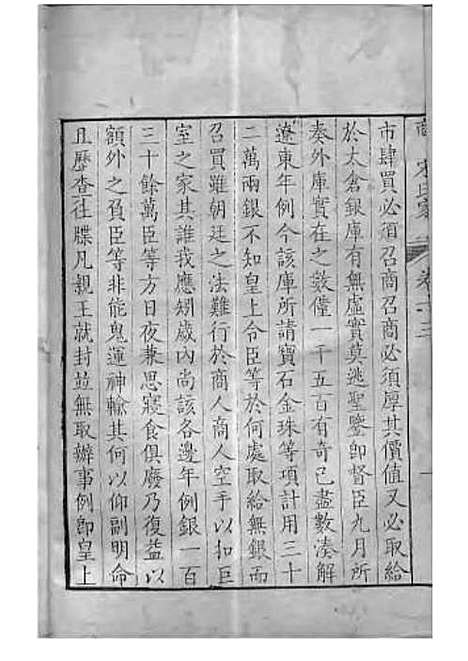 商 宋氏家 卷十三
市肆買必須召商召商必須厚其價值又必取給
於太倉銀庫有無虛實莫逃聖鑒卽督臣九月所
奏外庫實在之數僅一千五百有奇已盡數湊解
遼東年例今該庫所請寶石金珠等項計用三十
二萬兩銀不知皇上令臣等於何處取給無銀而
召買雖朝廷之法難行於商人商人空手以扣巨
室之家其誰我應矧歲內尚該各邊年例銀一百
三十餘萬臣等方日夜兼思寢食俱廢乃復益以
額外之負臣等非能鬼運神輸其何以仰副明命
且歷查往牒凡親王就封並無取辦事例卽皇上